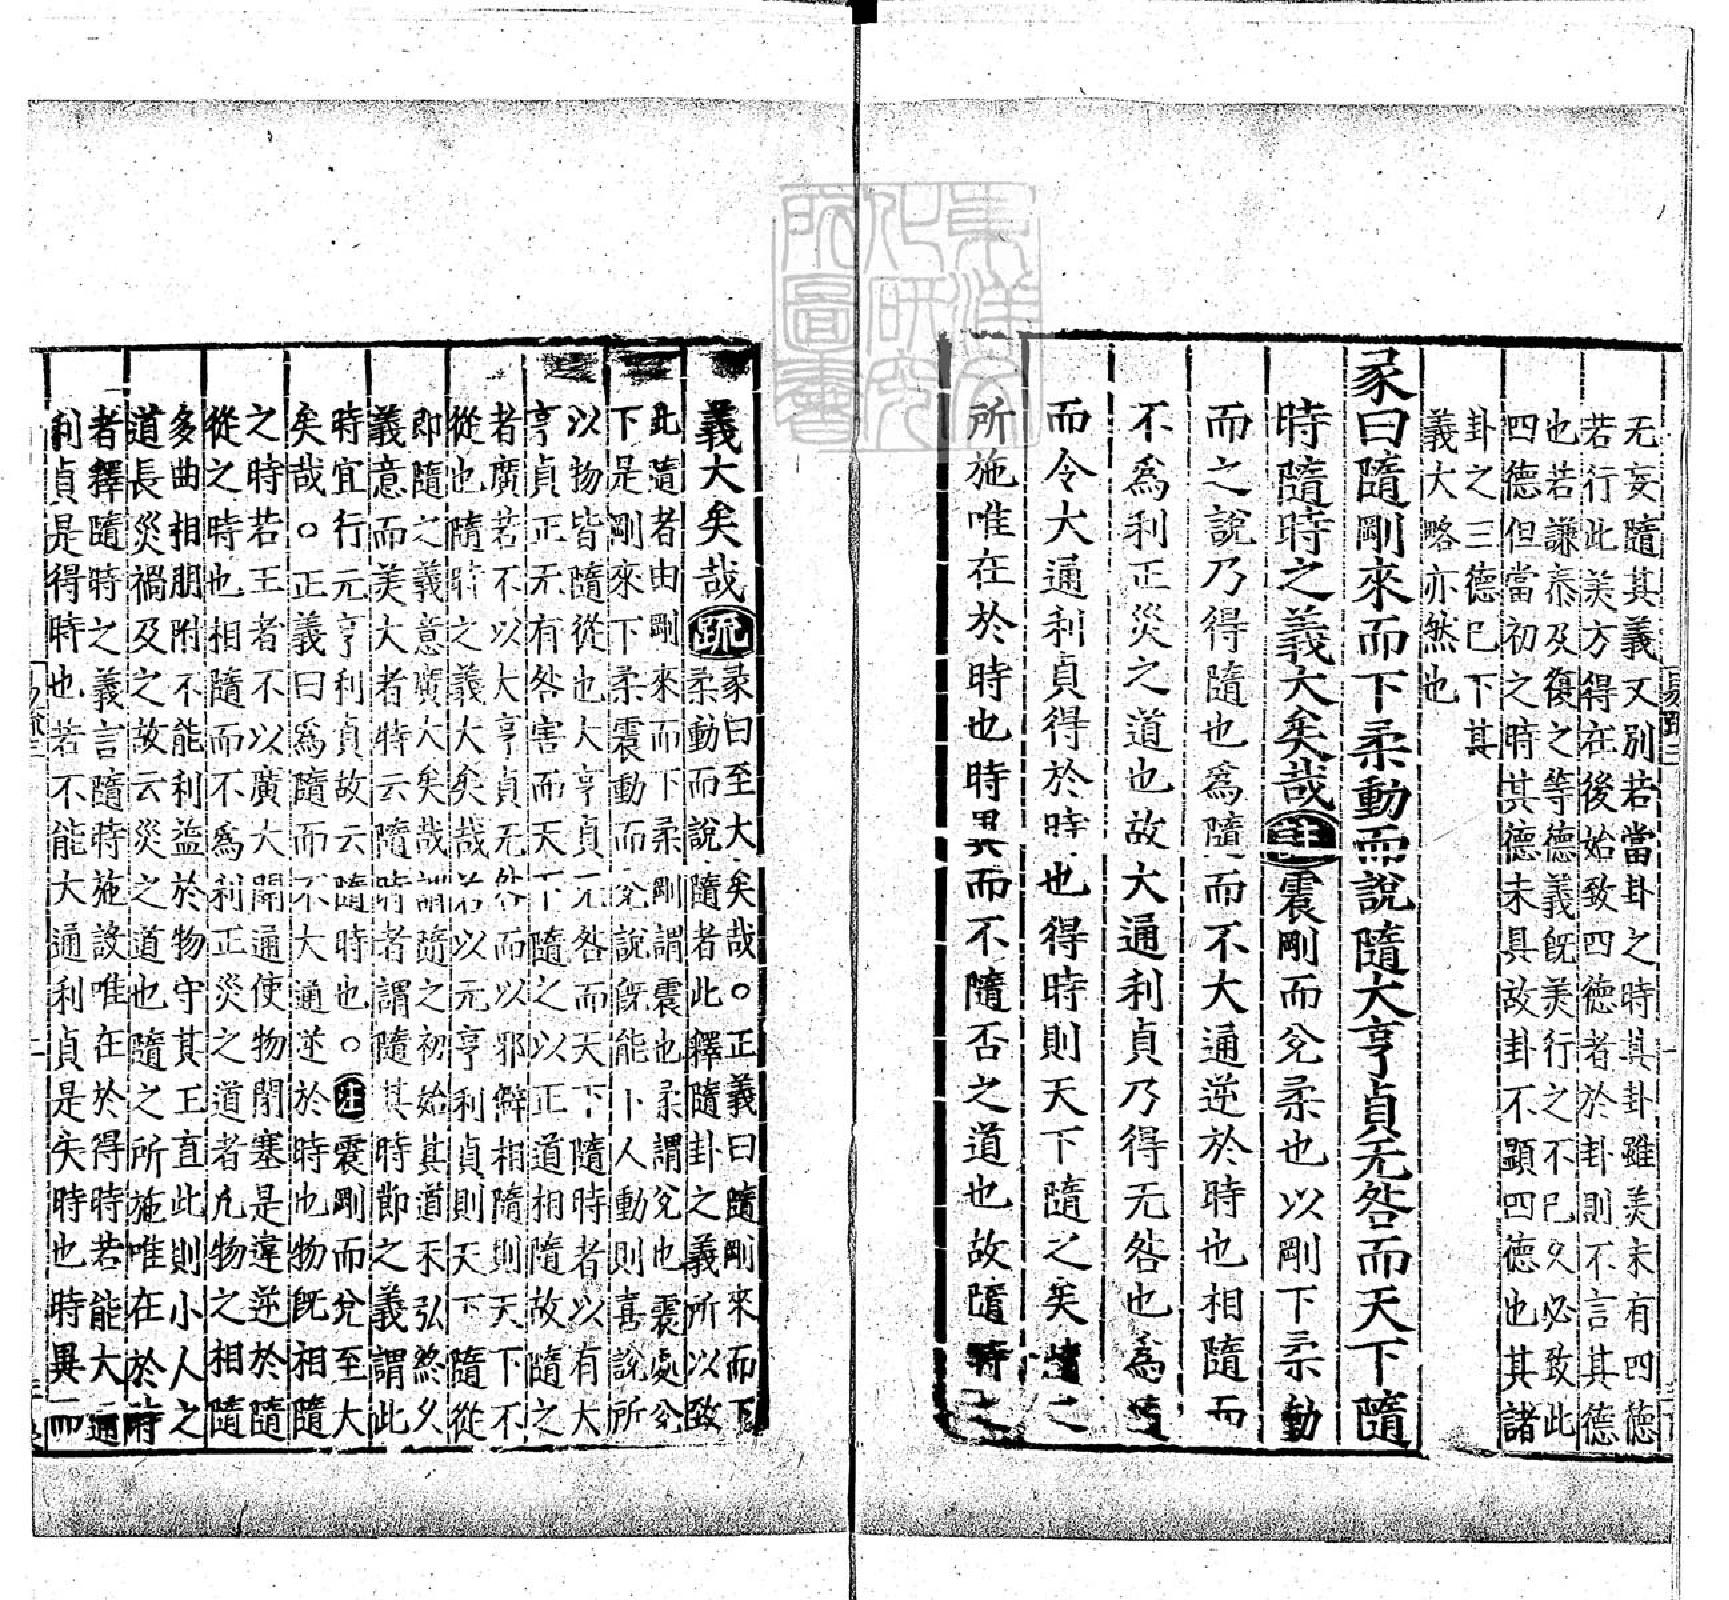 无妄隨其義又別若當卦之時其卦雖美未有四德
若行此美方得在後始致四德者於卦則不言其德
也若謙泰及復之等德義既美行之不已久必致此
四德但當初之時其德未具故卦不顯四德也其諸
卦之三德已下其
義大略亦然也
彖曰隨剛來而下柔動而說隨大亨貞无咎而天下隨
時隨時之義大矣哉注震剛而兌柔也以剛下柔動
而之說乃得隨也為隨而不大通逆於時也相隨而
不為利正災之道也故大通利貞乃得无咎也為
而令大通利貞得於時也得時則天下隨之矣之
所施唯在於時也時異而不隨否之道也故隨時之
義大矣哉疏彖曰至大矣哉○正義曰隨剛來而下
柔動而說隨者此釋隨卦之義所以致
此隨者由剛來而下柔剛謂震也柔謂兌也震處兌
下是剛來下柔震動而兌說既能下人動則喜說所
以物皆隨從也大亨貞无咎而天下隨時者以有大
亨貞正无有咎害而天下隨之以正道相隨故隨之
者廣若不以大亨貞无咎而以邪僻相隨則天下不
從也隨時之義大矣哉若以元亨利貞則天下隨從
即隨之義意廣大矣哉謂隨之初始其道未弘終久
義意而美大者特云隨時者謂隨其時節之義謂此
時宜行元亨利貞故云隨時也○注震剛而兌至大
矣哉○正義曰為隨而不大通逆於時也物既相隨
之時若王者不以廣大開通使物閉塞是違逆於隨
從之時也相隨而不為利正災之道者凡物之相隨
多曲相朋附不能利益於物守其王直此則小人之
道長災禍及之故云災之道也隨之所施唯在於時
者釋隨時之義言隨時施設唯在於得時若能大通
利貞是得時也若不能大通利貞是失時也時異而